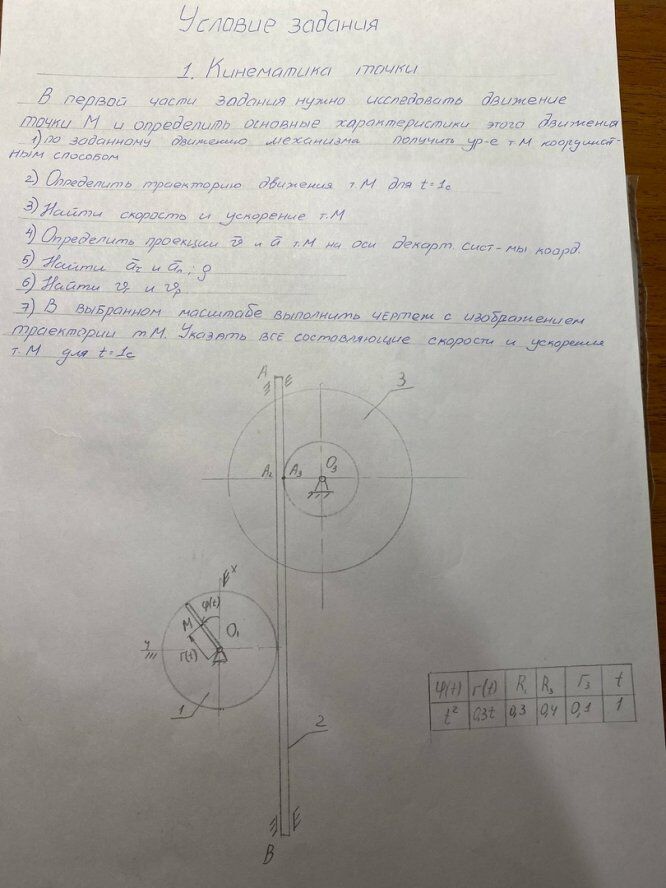 Условие задания
1. Кинематика точки
В первой части задания нужно исследовать движение
точки М и определить основные характеристики этого движения
1) по заданному движению механизма получить ур-е т.М координат-
ным способом
2) Определить траекторию движения т.М для t=1с
3) Найти скорость и ускорение т.М
4) Определить проекции v̄ и ā т.М на оси декарт. сист-мы коорд.
5) Найти ā_τ и ā_n; ρ
6) Найти v_r и v_p
7) В выбранном масштабе выполнить чертеж с изображением
траектории т.М. Указать все составляющие скорости и ускорения
т.М для t=1с
A
E
3
A₂
A₃
O₃
x
φ(t)
M
O₁
y
r(t)
1
2
E
B
φ(t) r(t) R₁ R₃ r₃ t
t² 0,3t 0,3 0,4 0,1 1